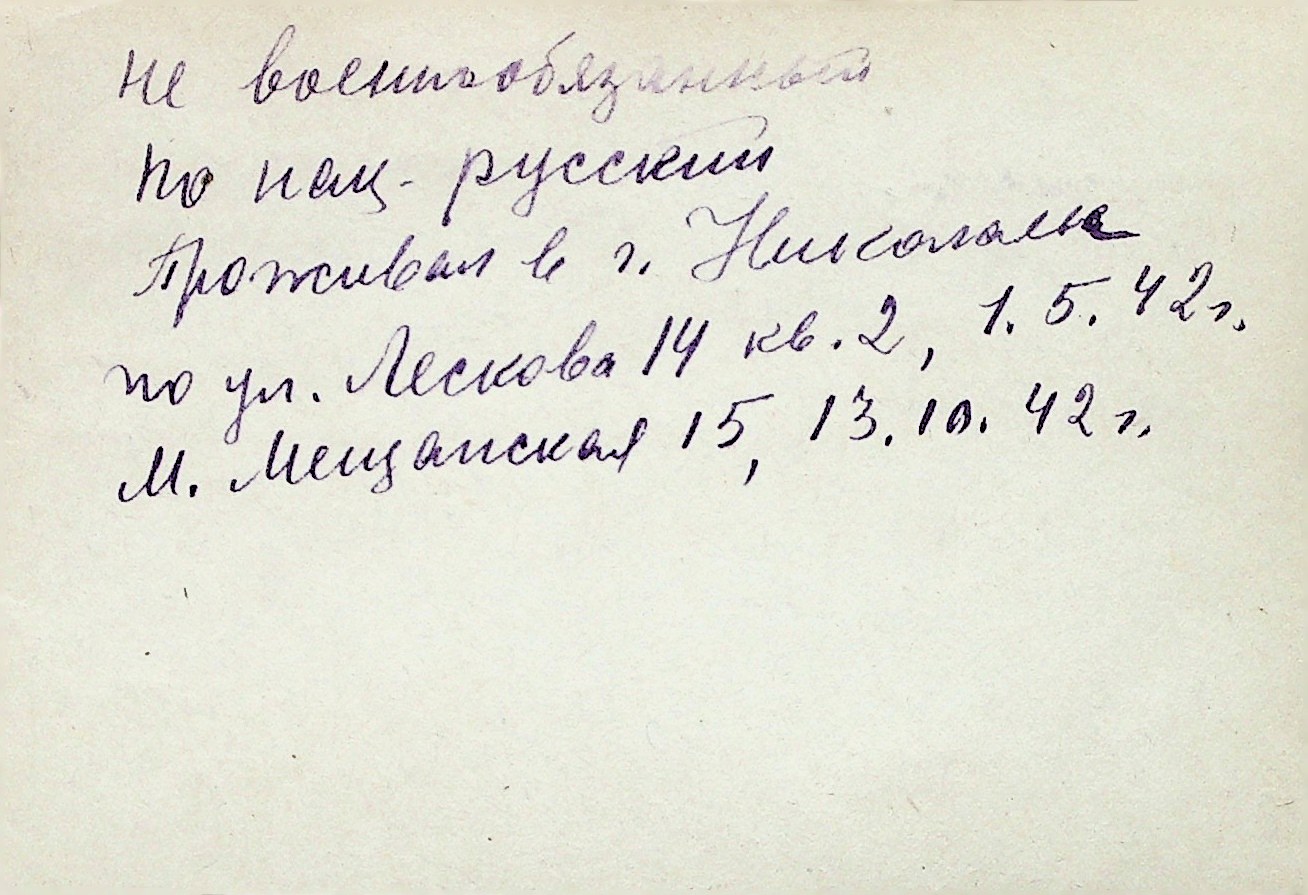 не военнообязанный
по нац. русский
Проживал в г. Николаеве
по ул. Лескова 14 кв. 2, 1. 5. 42 г.
М. Мещанская 15, 13. 10. 42 г.